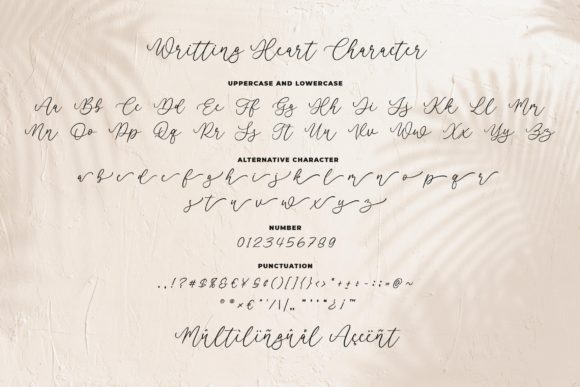 Writting Heart Character
UPPERCASE AND LOWERCASE
Aa Bb Cc Dd Ee Ff Gg Hh Ii Jj Kk Ll Mm
Nn Oo Pp Qq Rr Ss Tt Uu Vv Ww Xx Yy Zz
ALTERNATIVE CHARACTER
a b c d e f g h i j k l m n o p q r
s t u v w x y z
NUMBER
0123456789
PUNCTUATION
.,!?#$%&€¥$¢()[]{}<>*+±÷-:;=@~
Múltilïngúål Asçëñt